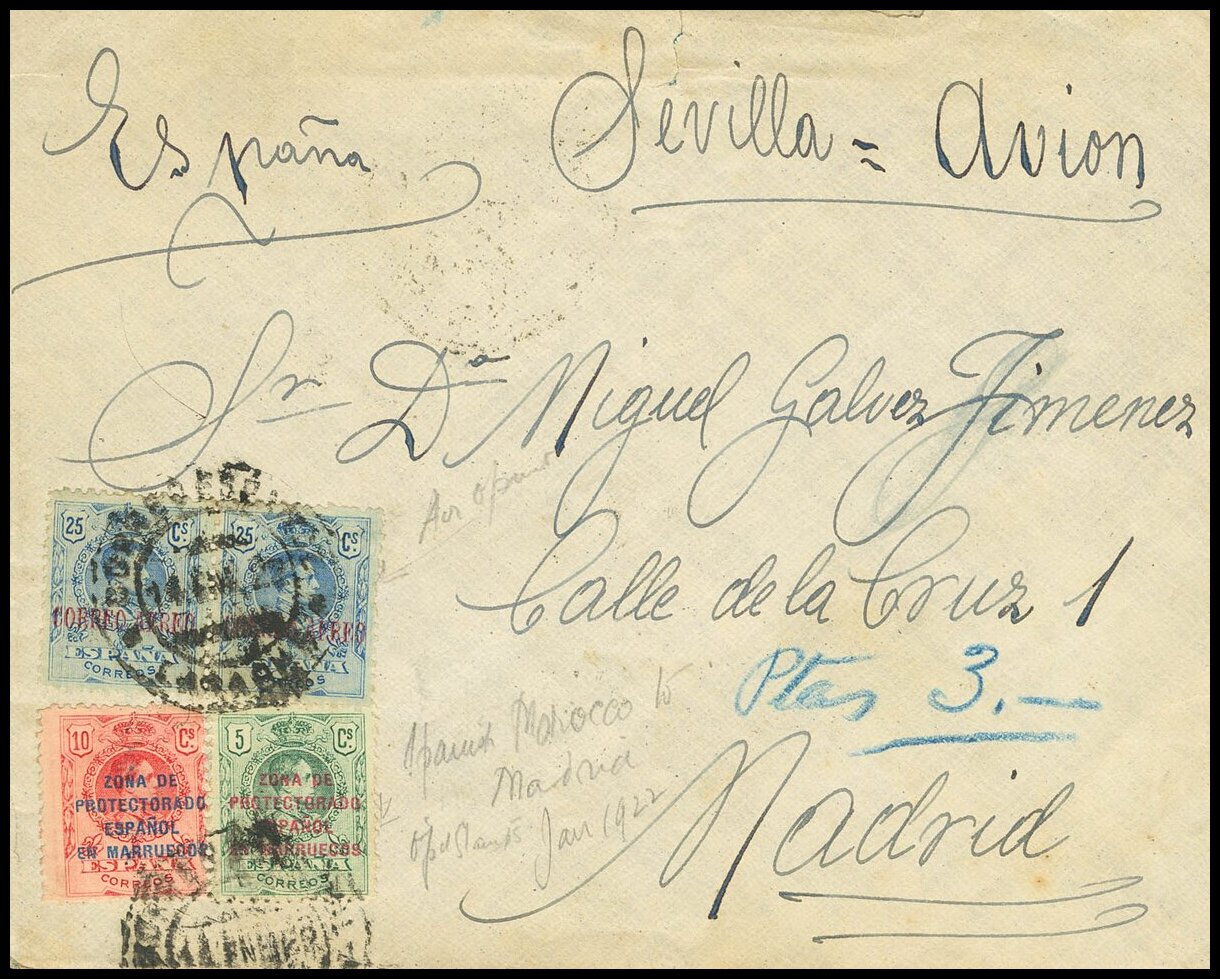 España
Sevilla = Avion
Sr Dⁿ Miguel Galvez Jimenez
Calle de la Cruz 1
Ptas 3.—
Madrid
25 Cs 25 Cs
CORREO AEREO CORREO AEREO
ESPAÑA ESPAÑA
CORREOS CORREOS
10 Cs 5 Cs
ZONA DE ZONA DE
PROTECTORADO PROTECTORADO
ESPAÑOL ESPAÑOL
EN MARRUECOS EN MARRUECOS
ESPAÑA ESPAÑA
CORREOS CORREOS
Spanish Marocco to
Madrid
Jan 1922